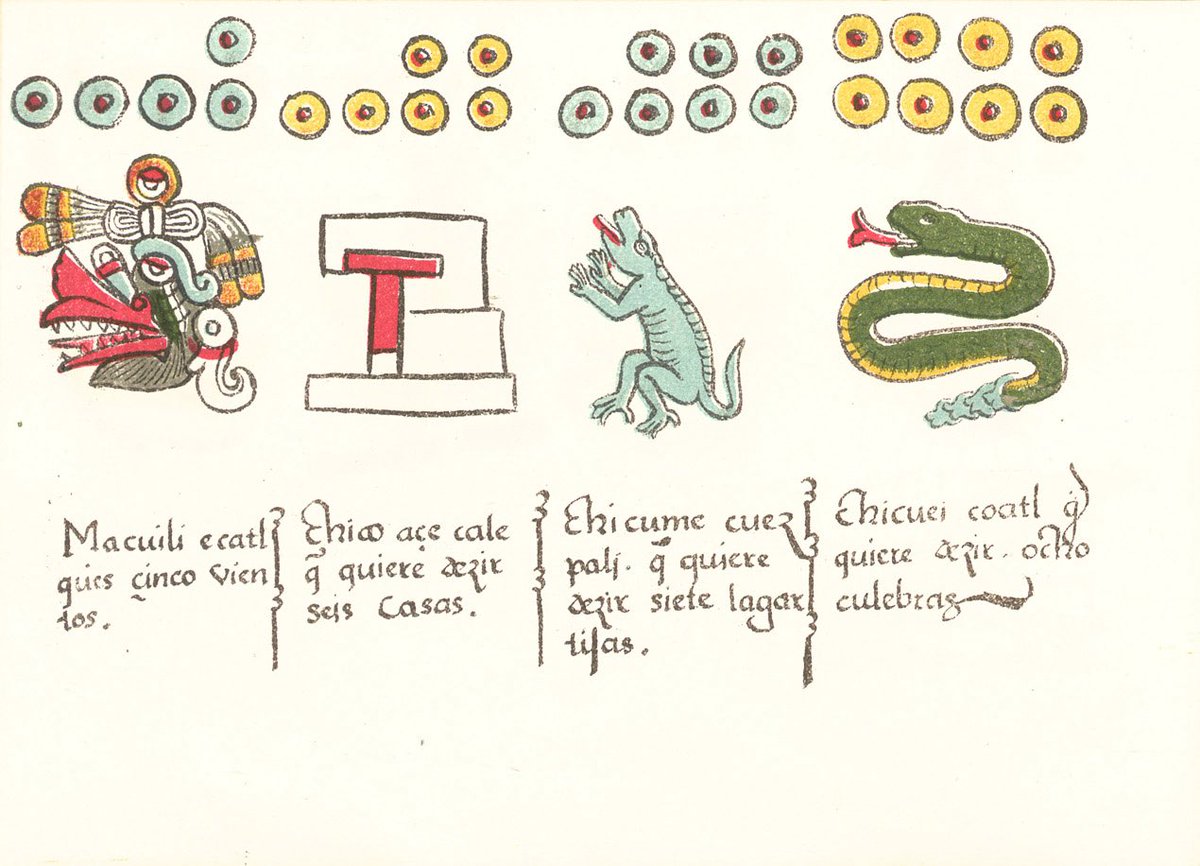 Macuili ecatl
ques çinco vien
tos.
Chico açe cale
q̃ quiere dezir
seis casas.
Chicume cuez
pali. q̃ quiere
dezir siete lagar
tijas.
Chicuei coatl q̃
quiere dezir. ocho
culebras